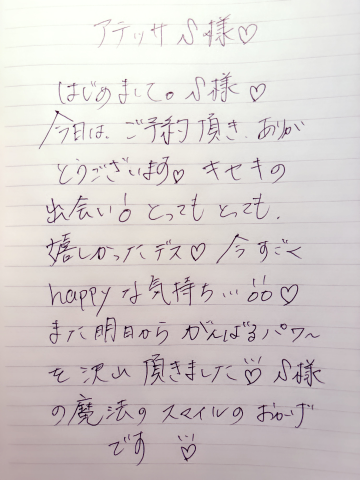 アテッサ S様♡
はじめまして。S様♡
今日は、ご予約頂き、ありが
とうございます♡ キセキの
出会い!!とっても とっても、
嬉しかったデス♡ 今すごく
happyな気持ち…!!♡
また明日から がんばるパワ〜
を沢山 頂きました♡ S様
の魔法の スマイルの おかげ
です ♡